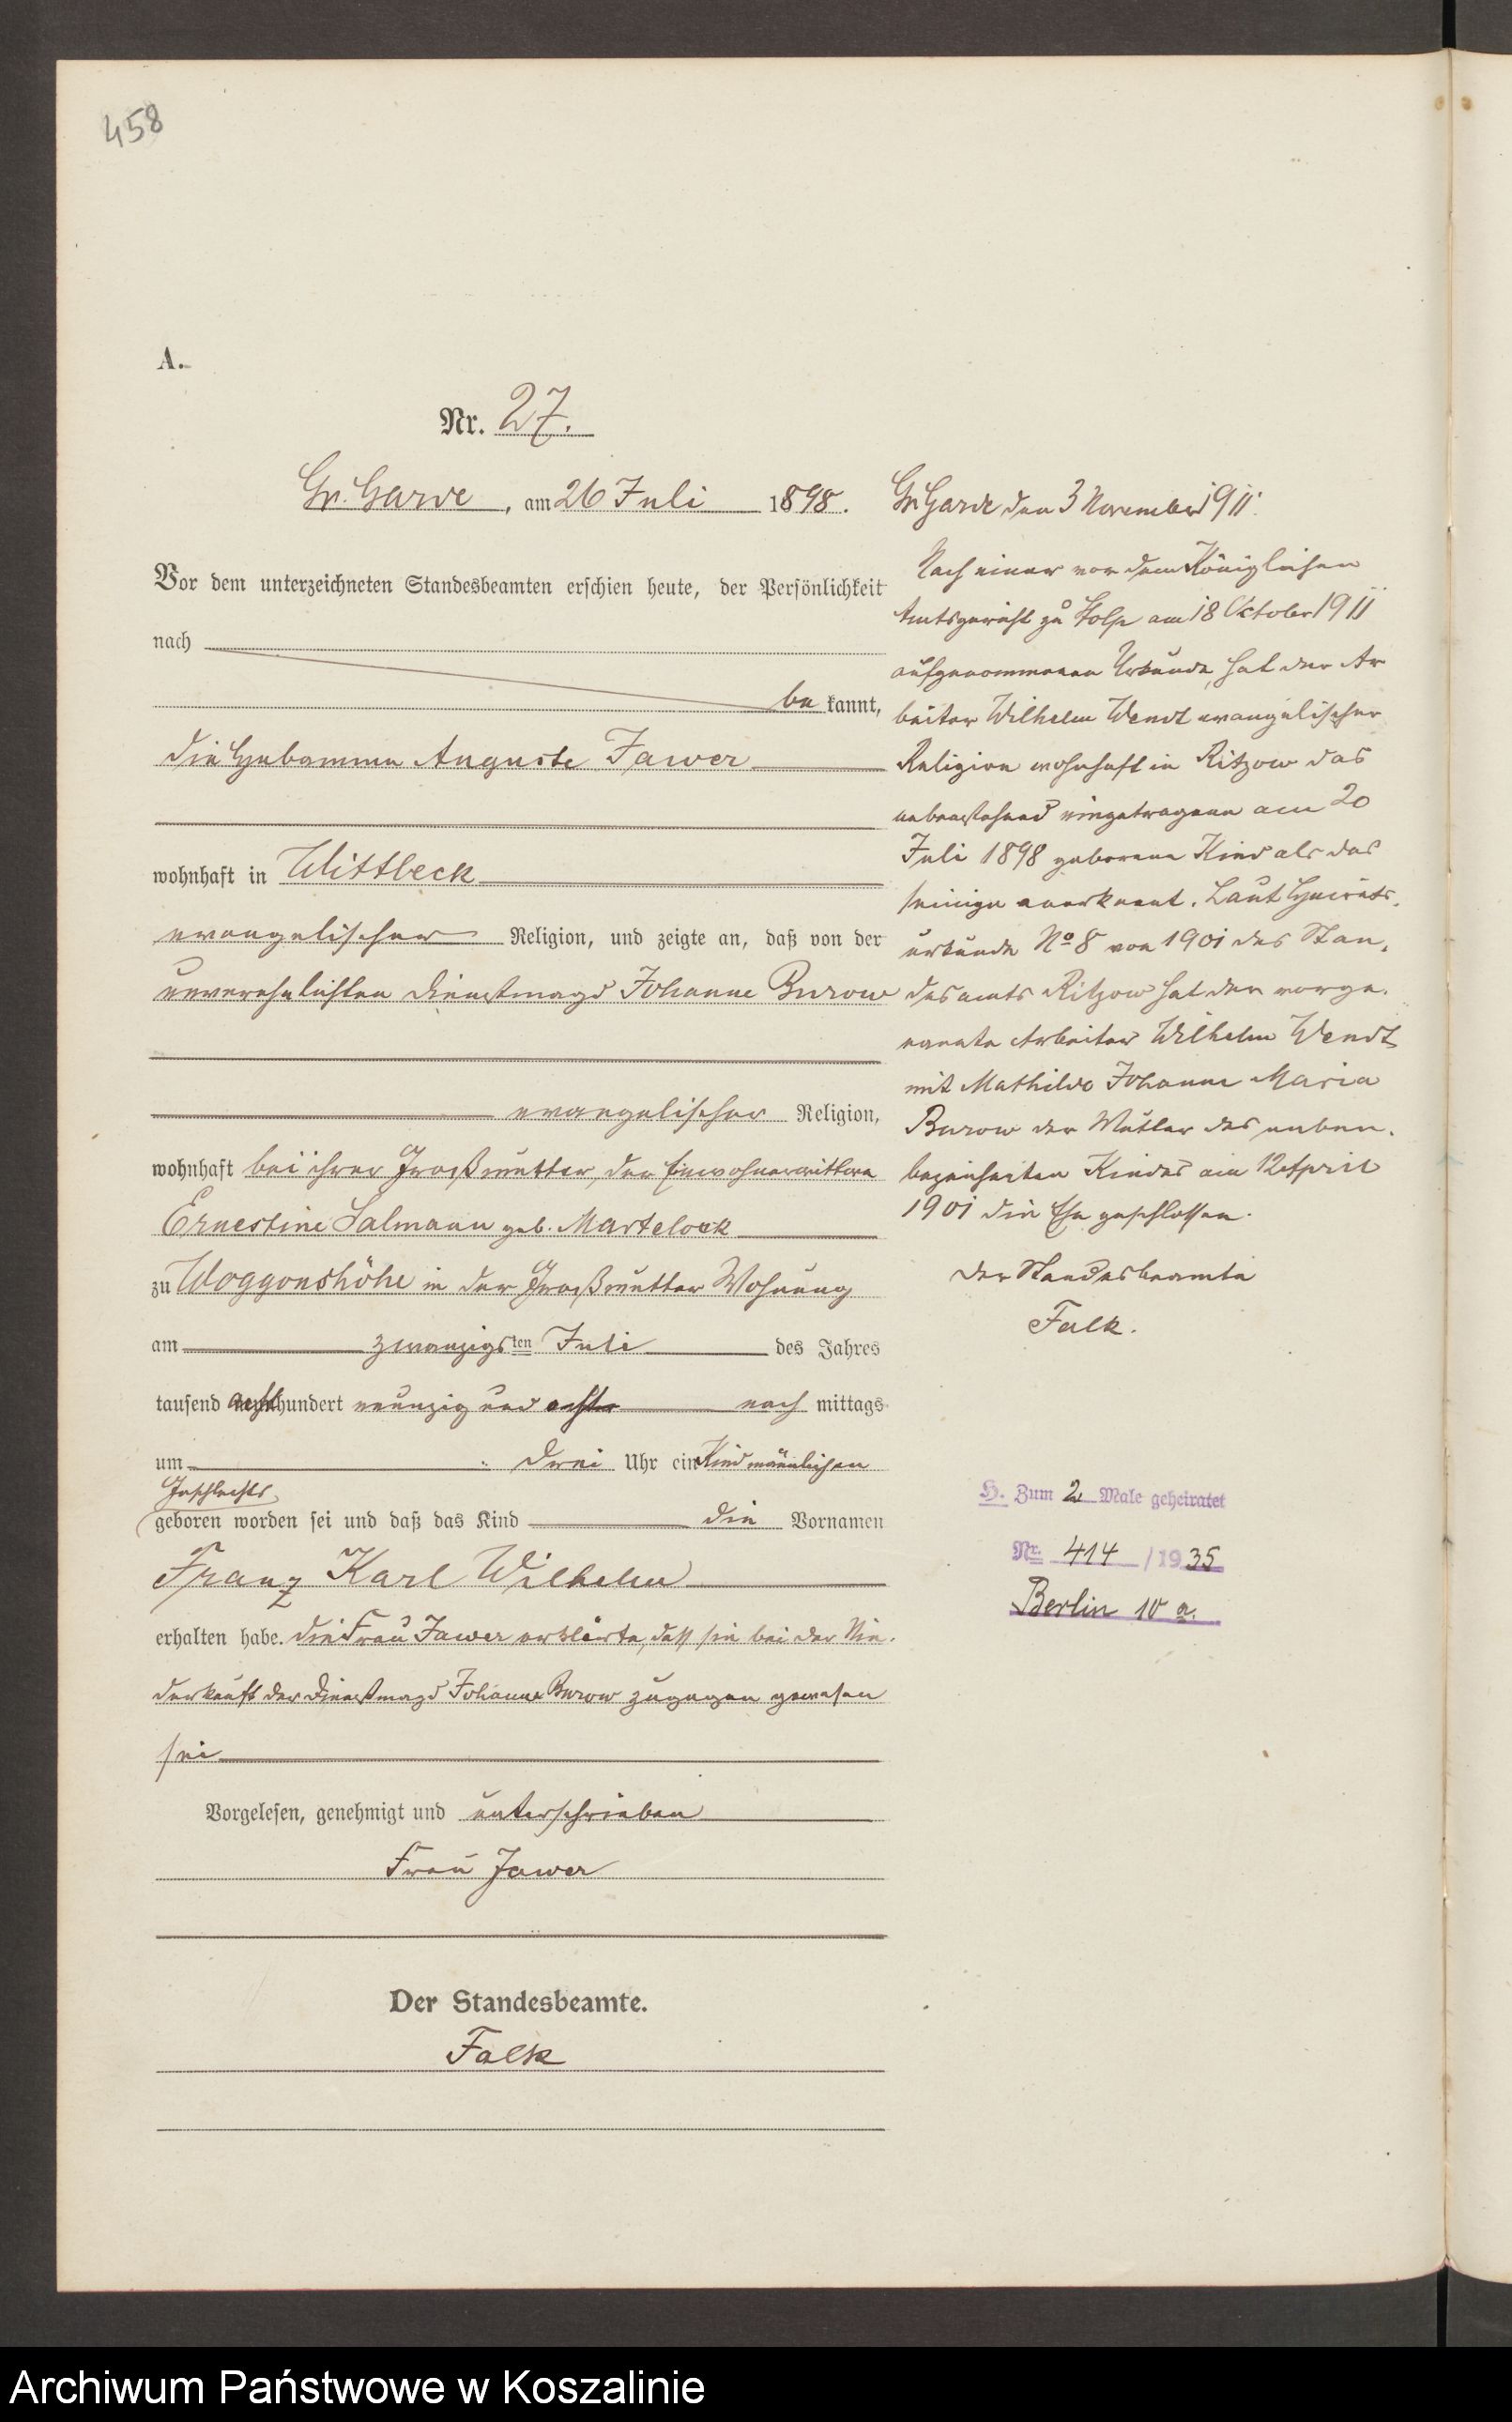 458
A.
Nr. 27.
Gr. Garde, am 26 Juli 1898.
Vor dem unterzeichneten Standesbeamten erschien heute, der Persönlichkeit
nach
be kannt,
die Hebamme Auguste Jawer
wohnhaft in Wittbeck
evangelischer Religion, und zeigte an, daß von der
unverehelichten Dienstmagd Johanne Burow
evangelischer Religion,
wohnhaft bei ihrer Großmutter, der Einwohnerwittwe
Ernestine Salmann geb. Martelock
zu Woggonshöhe in der Großmutter Wohnung
am zwanzigsten Juli des Jahres
tausend achthundert neunzig und acht nach mittags
um drei Uhr ein Kind männlichen
Geschlechts
geboren worden sei und daß das Kind die Vornamen
Franz Karl Wilhelm
erhalten habe. Die Frau Jawer erklärte, daß sie bei der Nie-
derkunft der Dienstmagd Johanne Burow zugegen gewesen
sei
Vorgelesen, genehmigt und unterschrieben
Frau Jawer
Der Standesbeamte.
Falk
Gr. Garde den 3 November 1911.
Nach einer vor dem Königlichen
Amtsgericht zu Stolp am 18 Oktober 1911
aufgenommenen Urkunde, hat der Ar
beiter Wilhelm Wendt evangelischer
Religion wohnhaft in Ritzow das
nebenstehend eingetragene am 20
Juli 1898 geborene Kind als das
seinige anerkannt. Laut Heirats-
urkunde No 8 von 1901 des Stan-
desamts Ritzow hat der vorge-
nannte Arbeiter Wilhelm Wendt
mit Mathilde Johanne Maria
Burow der Mutter des neben-
bezeichneten Kindes am 12 April
1901 die Ehe geschlossen.
Der Standesbeamte
Falk.
H. Zum 2. Male geheiratet
Nr. 414 / 1935
Berlin 10 a.
Archiwum Państwowe w Koszalinie